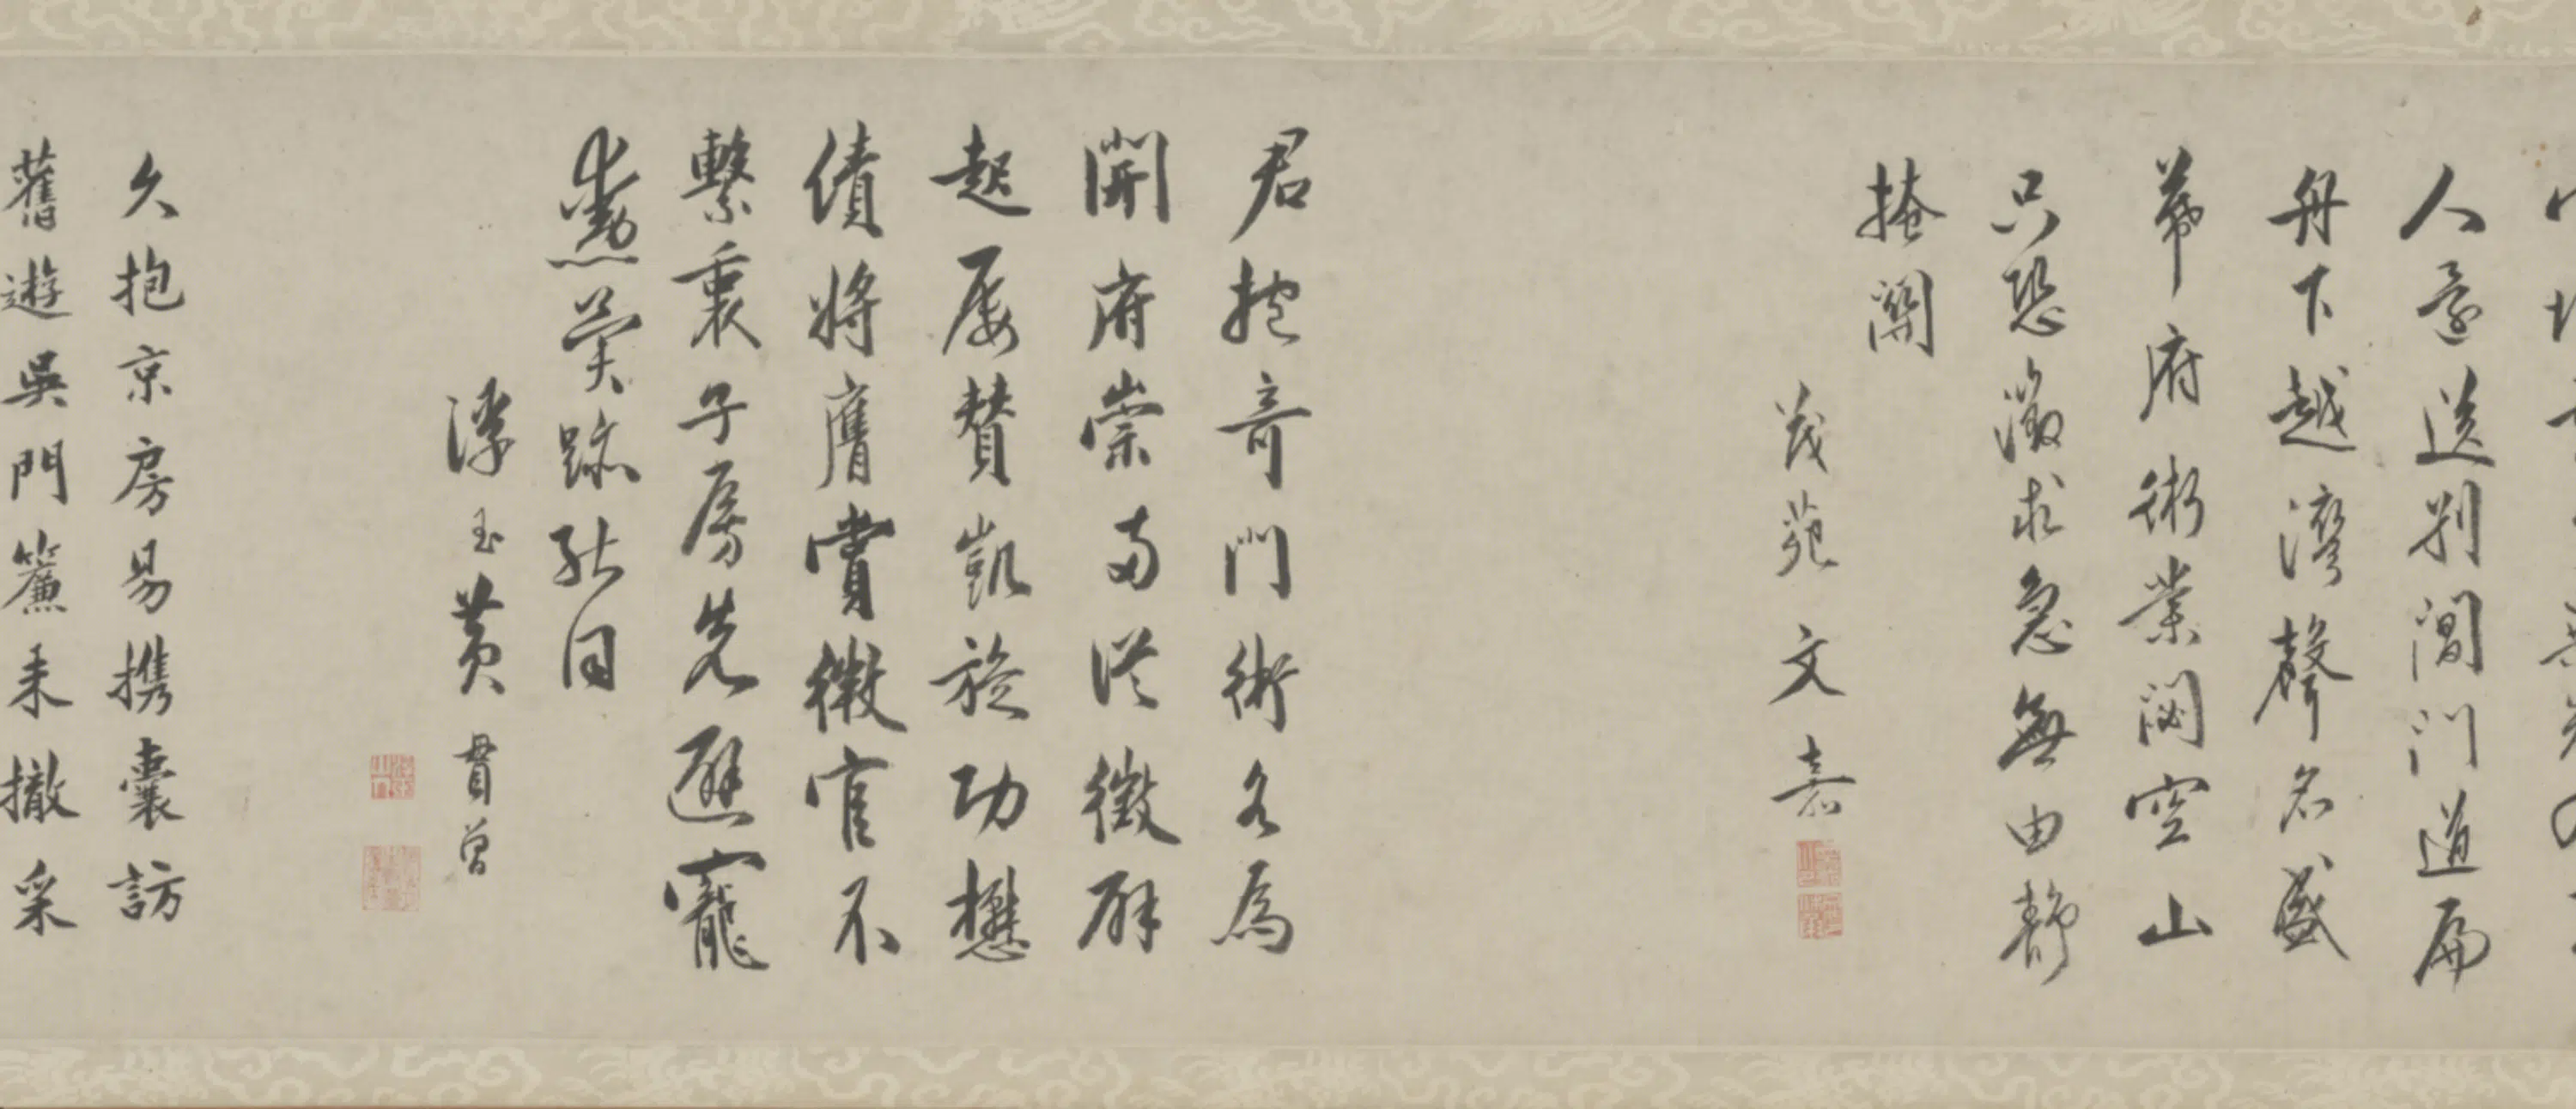 人意送別閶門道扁
舟下越灣聲名盛
幕府術業閟空山
只恐徵求急無由靜
掩關
茂苑文嘉
君抱奇門術名為
開府崇両從徵辟
起屢贊凱旋功懋
績將膺賞微官不
繫裏子房先避寵
燕筴跡能同
淳玉黃貫曾
久抱京房易携囊訪
舊遊吳門簾未撤采